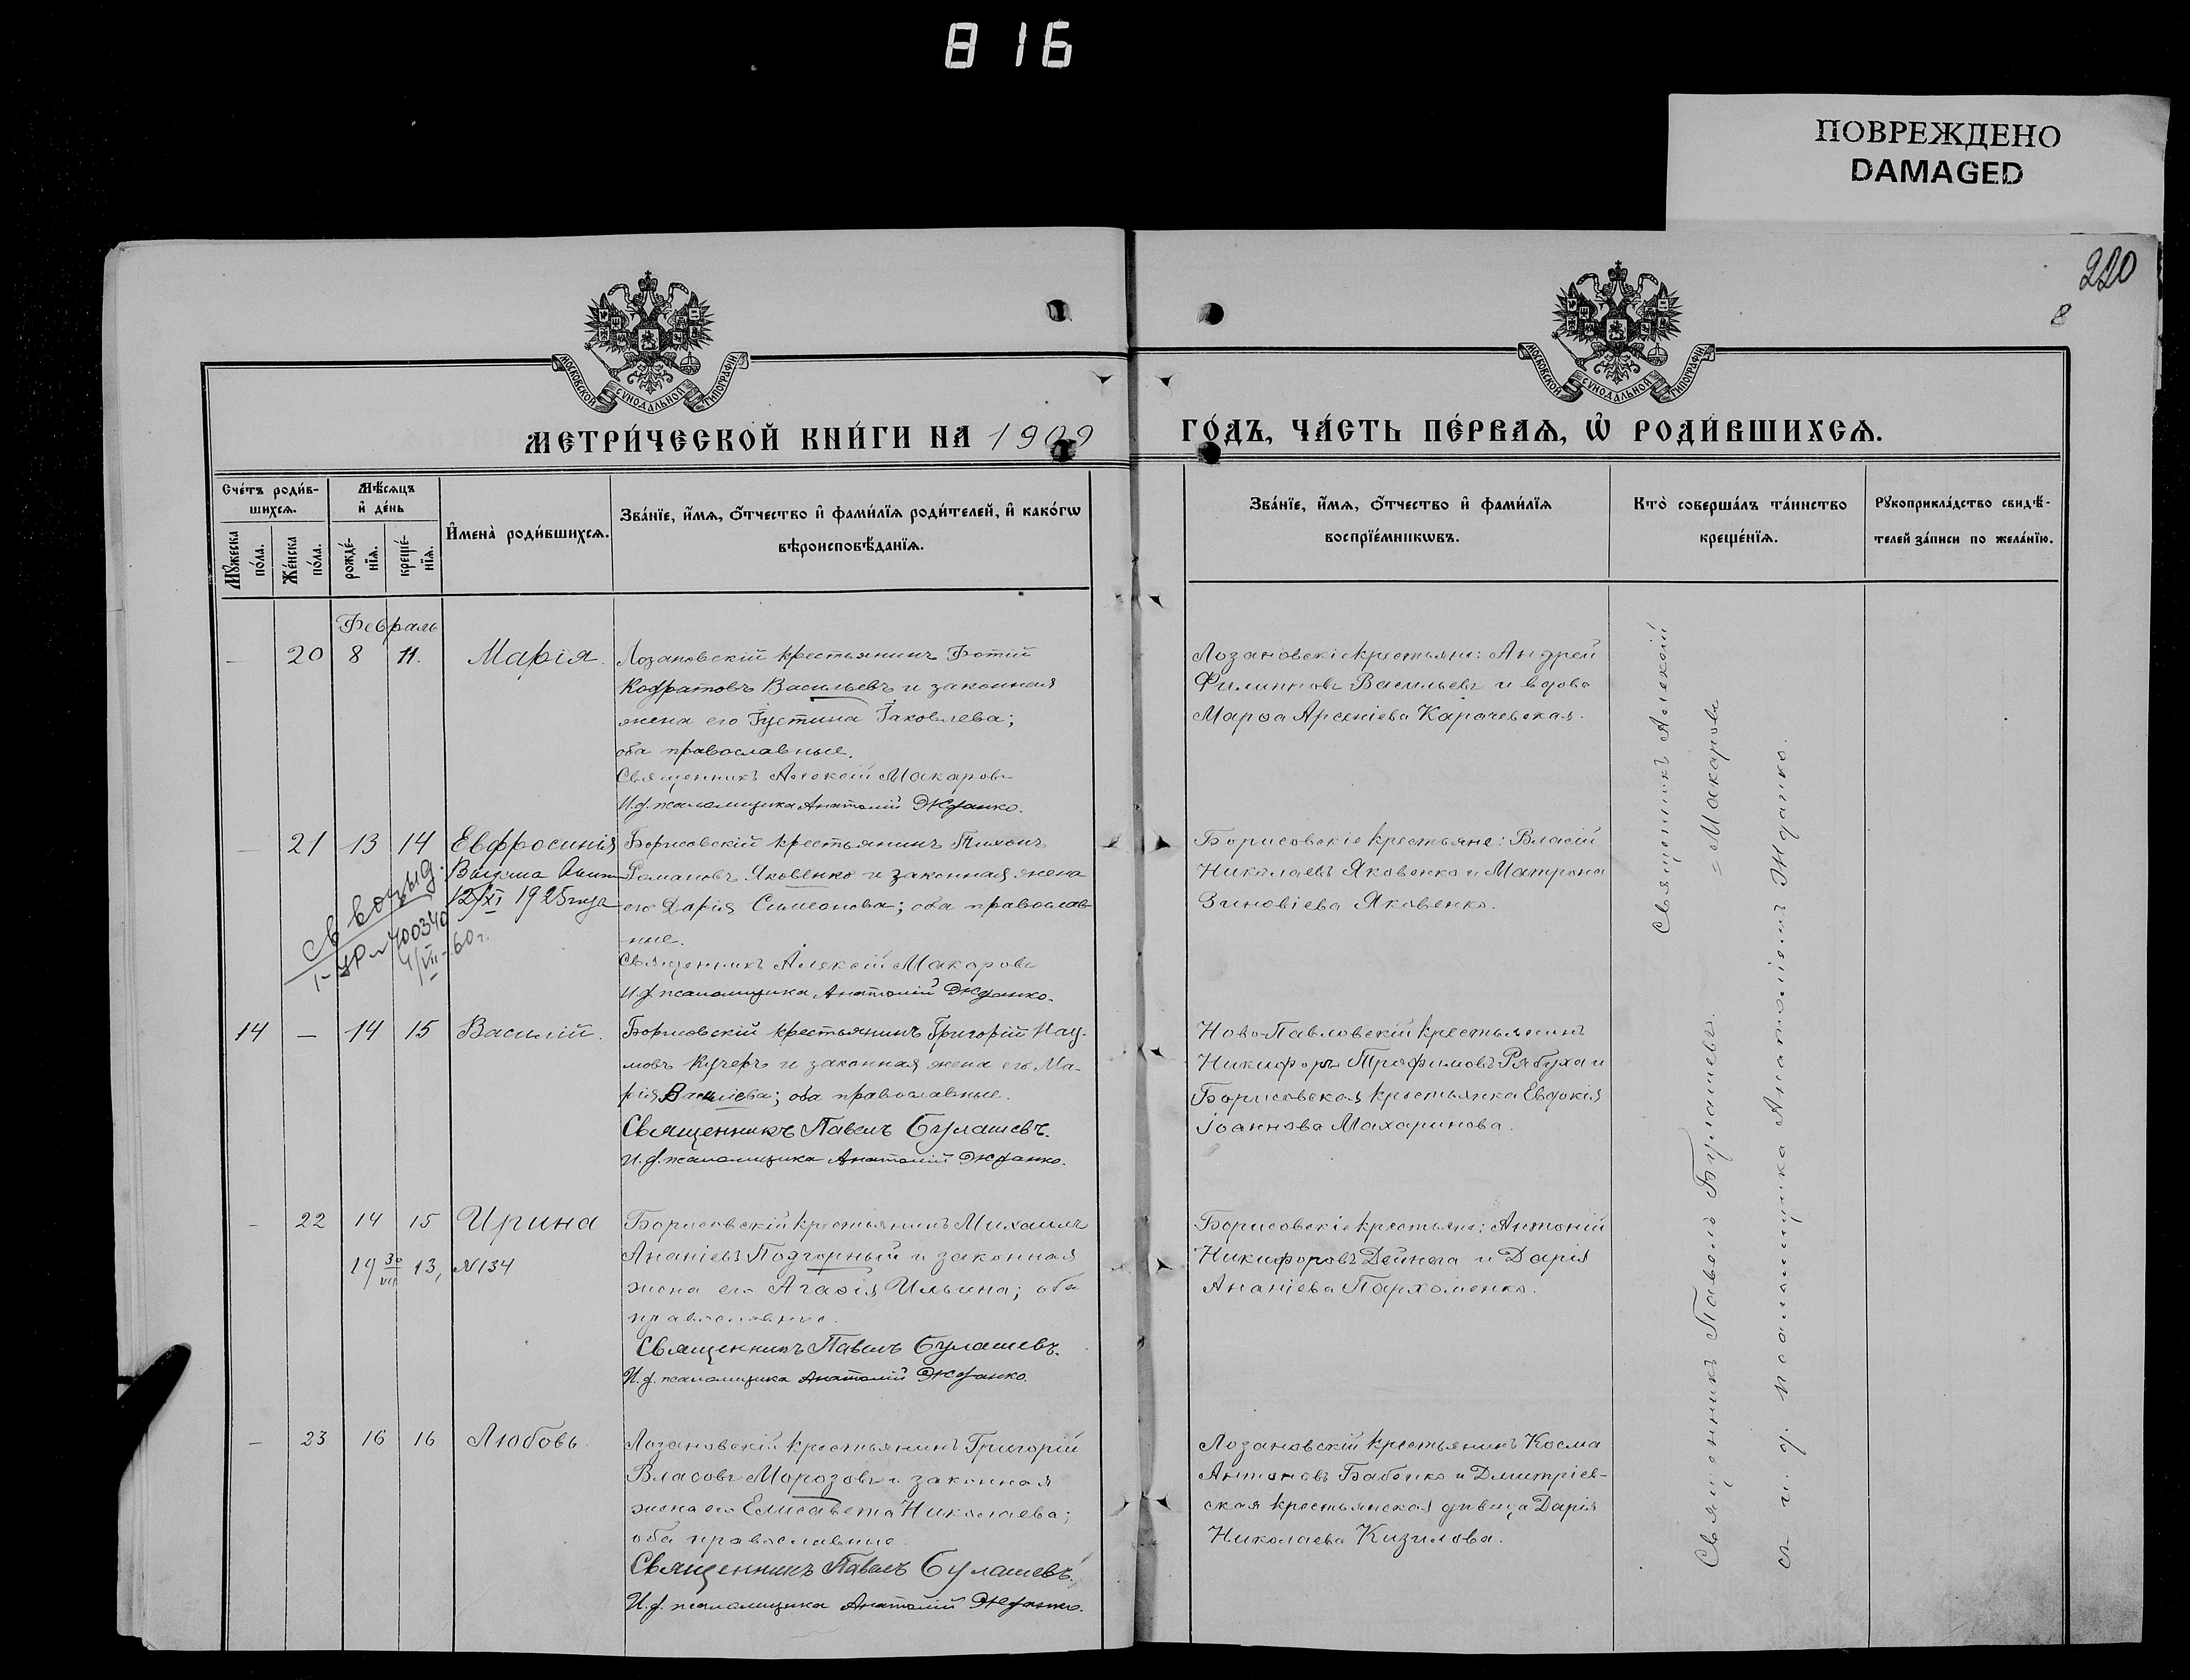 816
ПОВРЕЖДЕНО
DAMAGED
220
8
МОСКОВСКОЙ СѴНОДАЛЬНОЙ ТИПОГРАФІИ
МОСКОВСКОЙ СѴНОДАЛЬНОЙ ТИПОГРАФІИ
МЕТРИ́ЧЕСКОЙ КНИ́ГИ НА 1909
ГО́ДЪ, ЧА́СТЬ ПЕ́РВАѦ, Ѽ РОДИ́ВШИХСѦ.
Сче́тъ роди́в-
шихсѧ.
Мꙋ́жеска
по́ла.
Же́нска
по́ла.
Мѣ́сѧцъ
и҆ де́нь
рожде́-
нїѧ.
креще́-
нїѧ.
И҆мена̀ роди́вшихсѧ.
Зва́нїе, и҆́мѧ, ѻ҆́тчество и҆ фами́лїѧ роди́телей, и҆ како́гѡ
вѣроисповѣ́данїѧ.
Зва́нїе, и҆́мѧ, ѻ҆́тчество и҆ фами́лїѧ
воспрїе́мникѡвъ.
Кто̀ соверша́лъ та́инство
креще́нїѧ.
Рꙋкоприкла́дство свидѣ́-
телей за́писи по жела́нїю.
Февраль
— 20 8 11. Марія.
Лозановскій крестьянинъ Фотій
Кодратовъ Васильевъ и законная
жена его Іустина Іаковлева;
оба православные.
Священникъ Алексій Макаровъ
И.д. псаломщика Анатолій Жданко.
Лозановскіе крестьяни: Андрей
Филипповъ Васильевъ и вдова
Марѳа Арсеніева Карачевская.
— 21 13 14 Евфросинія
12/XI 1925 года
400340
VII-60г.
Борисовскій крестьянинъ Тихонъ
Романовъ Яковенко и законная жена
его Дарія Симеонова; оба православ-
ные.
Священникъ Алексій Макаровъ
И.д. псаломщика Анатолій Жданко.
Борисовскіе крестьяне: Власій
Николаевъ Яковенко и Матрона
Зиновіева Яковенко.
14 — 14 15 Василій.
Борисовскій крестьянинъ Григорій Нау-
мовъ Кучеръ и законная жена его Ма-
рія Василіева; оба православные.
Священникъ Павелъ Булашевъ.
И.д. псаломщика Анатолій Жданко.
Ново-Павловскій крестьянинъ
Никифоръ Трофимовъ Рябуха и
Борисовская крестьянка Евдокія
Іоаннова Махаринова.
— 22 14 15 Ирина
19 30/VII 13, N134
Борисовскій крестьянинъ Михаилъ
Ананіевъ Подгорный и законная
жена его Агаѳія Ильина; оба
православные.
Священникъ Павелъ Булашевъ.
И.д. псаломщика Анатолій Жданко.
Борисовскіе крестьяне: Антоній
Никифоровъ Дейнега и Дарія
Ананіева Пархоменко.
— 23 16 16 Любовь
Лозановскій крестьянинъ Григорій
Власовъ Морозовъ и законная
жена его Елисавета Николаева;
оба православные.
Священникъ Павелъ Булашевъ.
И.д. псаломщика Анатолій Жданко.
Лозановскій крестьянинъ Косма
Антоновъ Бабенко и Дмитріев-
ская крестьянская дѣвица Дарія
Николаева Кизилова.
Священникъ Алексій
= Макаровъ
Священникъ Павелъ Булашевъ.
съ и. д. псаломщика Анатоліемъ Жданко.